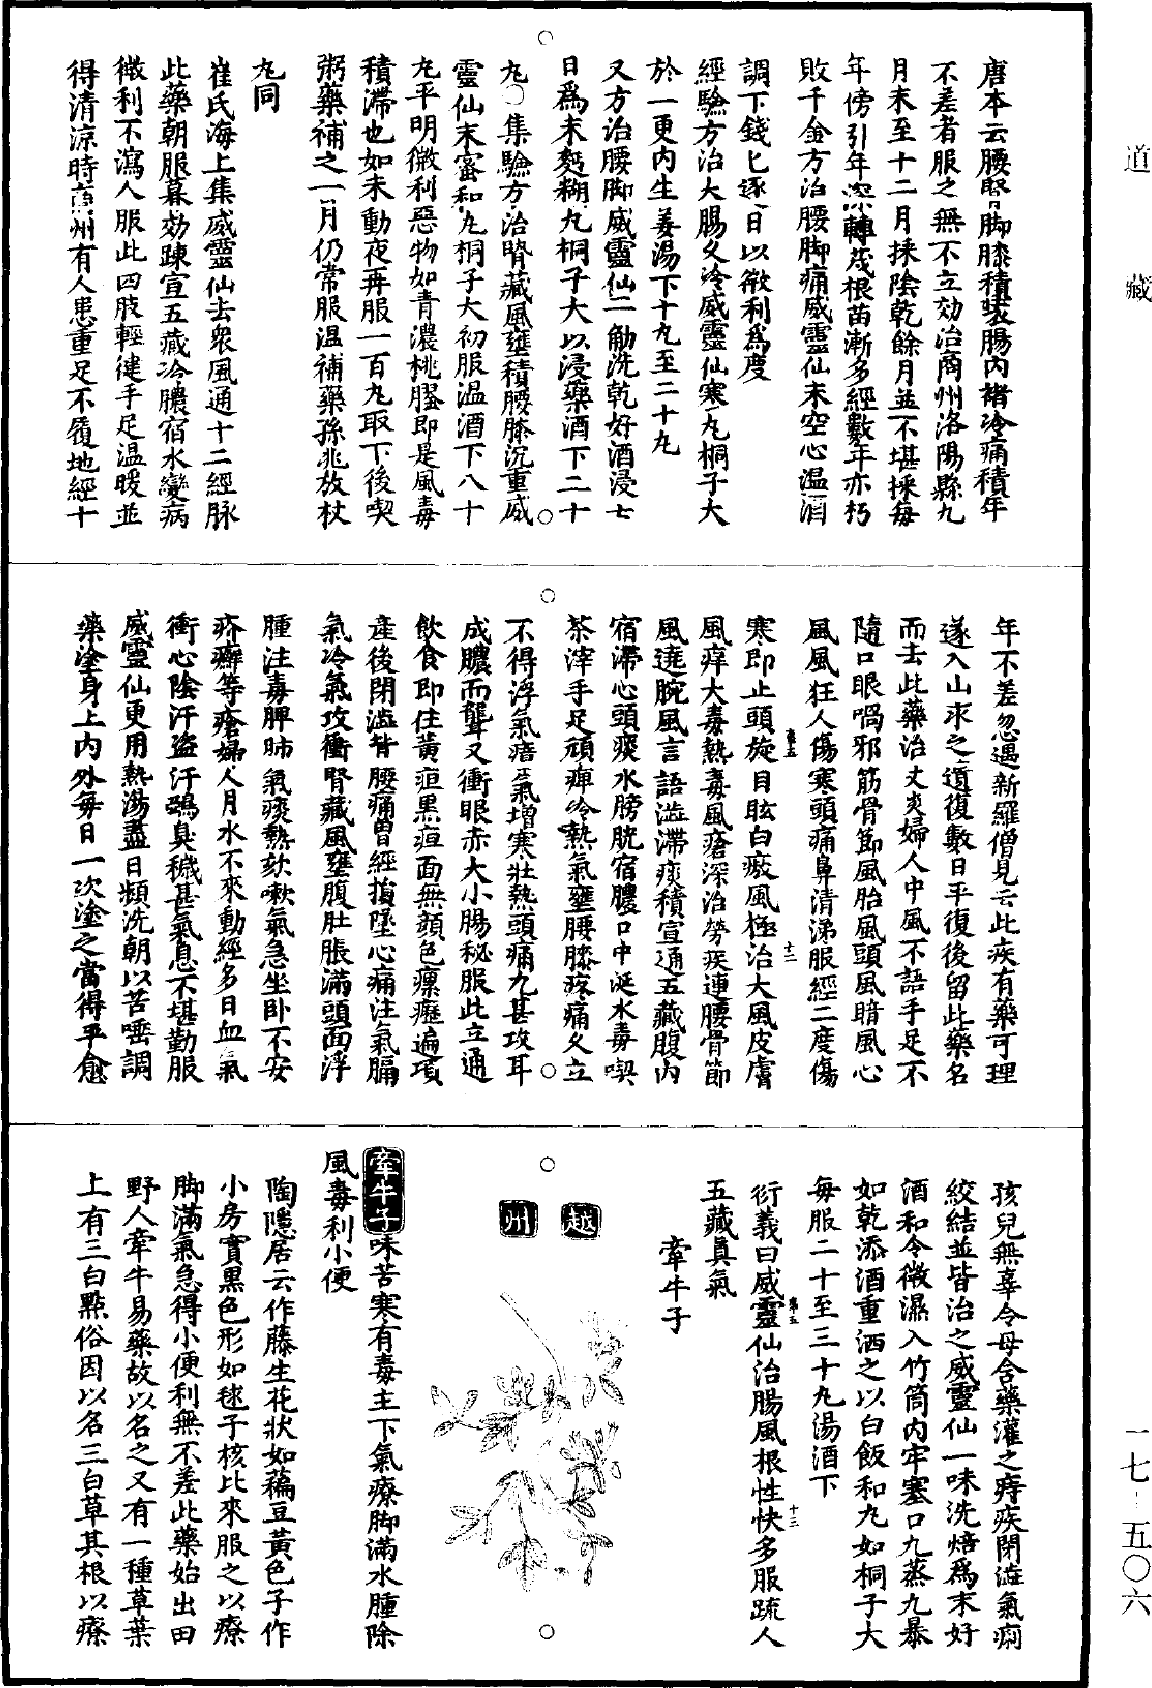 道藏
一七—五〇六
唐本云腰腎脚膝積聚腸內諸冷痛積年
不差者服之無不立効治商州洛陽縣九
月末至十二月採陰乾餘月並不堪採每
年傍引年深轉茂根苗漸多經數年亦朽
敗千金方治腰脚痛威靈仙末空心温酒
調下錢匕逐日以微利爲度
經驗方治大腸久冷威靈仙寒丸桐子大
於一更內生姜湯下十丸至二十丸
又方治腰脚威靈仙一觔洗乾好酒浸七
日爲末麪糊丸桐子大以浸藥酒下二十
丸〇集驗方治腎藏風壅積腰膝沉重威
靈仙末蜜和丸桐子大初服温酒下八十
丸平明微利惡物如青濃桃膠即是風毒
積滯也如未動夜再服一百丸取下後喫
粥藥補之一月仍常服温補藥孫兆放杖
丸同
崔氏海上集威靈仙去衆風通十二經脉
此藥朝服暮効踈宣五藏冷膿宿水變病
微利不瀉人服此四肢輕健手足温暖並
得清涼時商州有人患重足不履地經十
年不差忽遇新羅僧見云此疾有藥可理
遂入山求之遺復數日平復後留此藥名
而去此藥治丈夫婦人中風不語手足不
隨口眼喎邪筋骨節風胎風頭風暗風心
風風狂人傷寒頭痛鼻清涕服經二度傷
寒即止頭旋目眩白癜風極治大風皮膚
風痒大毒熱毒風瘡深治勞疾連腰骨節
風遶腕風言語澁滯痰積宣通五藏腹內
宿滯心頭痰水膀胱宿膿口中涎水毒喫
茶滓手足頑痺冷熱氣壅腰膝疼痛久立
不得浮氣瘴氣增寒壯熱頭痛尤甚攻耳
成膿而聾又衝眼赤大小腸秘服此立通
飲食即住黃疸黑疸面無顏色瘰癧遍項
產後閉澁甘腰痛曾經損墜心痛注氣膈
氣冷氣攻衝腎藏風壅腹肚脹滿頭面浮
腫注毒脾肺氣痰熱欬嗽氣急坐卧不安
疥癬等瘡婦人月水不來動經多日血氣
衝心陰汗盜汗鵶臭穢甚氣息不堪勤服
威靈仙更用熱湯盡日頻洗朝以苦唾調
藥塗身上內外每日一次塗之當得平愈
孩兒無辜令母含藥灌之痔疾閉澁氣痢
絞結並皆治之威靈仙一味洗焙爲末好
酒和令微濕入竹筒內牢塞口九蒸九暴
如乾添酒重洒之以白飯和丸如桐子大
每服二十至三十丸湯酒下
衍義曰威靈仙治腸風根性快多服疏人
五藏真氣
牽牛子
越州
牽牛子味苦寒有毒主下氣療脚滿水腫除
風毒利小便
陶隱居云作藤生花狀如藊豆黃色子作
小房實黑色形如毬子核比來服之以療
脚滿氣急得小便利無不差此藥始出田
野人牽牛易藥故以名之又有一種草葉
上有三白點俗因以名三白草其根以療